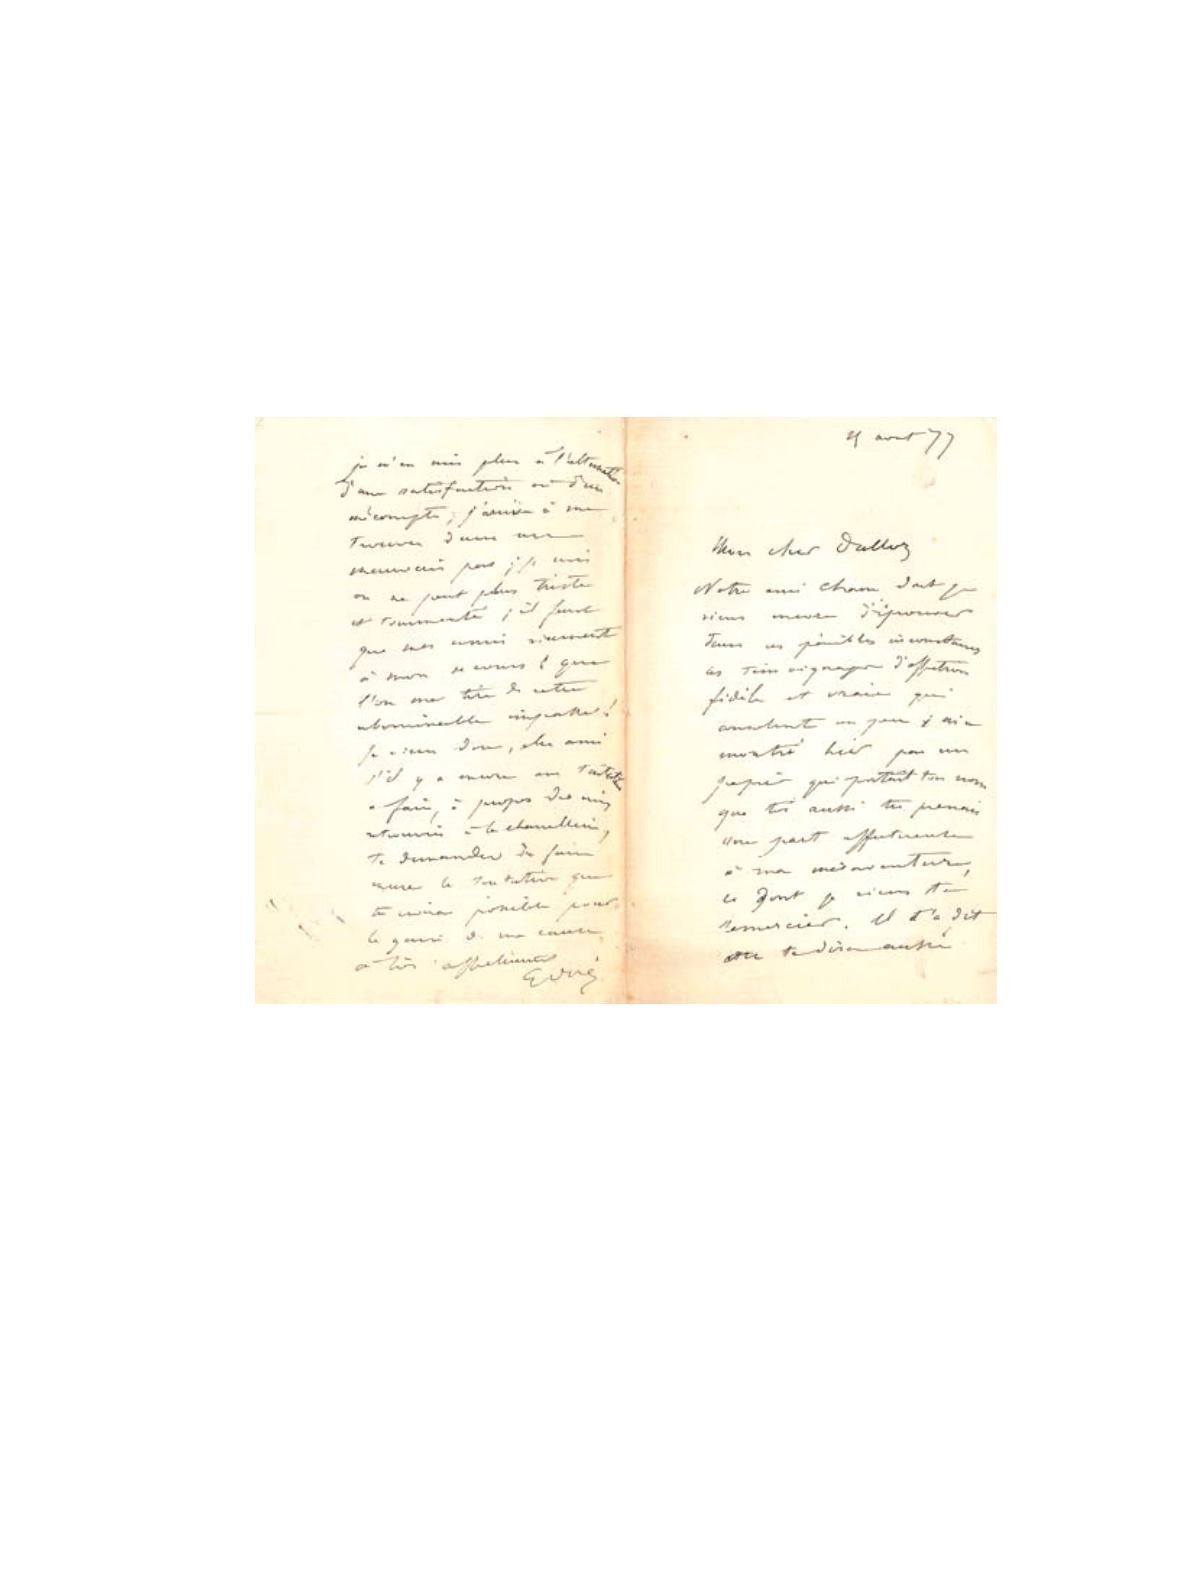 août 77
Mon cher Dalloz
Notre ami Cham dont je
viens encore d'éprouver
dans ces pénibles circonstances
ces témoignages d'affection
fidèle et vraie qui
consolent un peu m'a
montré hier par un
papier qui portait ton nom
que toi aussi tu prenais
une part affectueuse
à ma mésaventure,
ce dont je viens te
remercier. Il t'a dit
ou te dira aussi
je n'en suis plus à l'alternative
d'une satisfaction ou d'un
mécompte; j'arrive à me
trouver dans un
mauvais pas; je suis
on ne peut plus triste
et tourmenté; il faut
que mes amis viennent
à mon secours & que
l'on me tire de cette
abominable impasse!
Je viens donc, cher ami
s'il y a encore une
à faire, à propos de
à la chancellerie,
te demander de faire
encore la tentative que
tu croiras possible pour
le gain de ma cause
à toi affectueusement
G Doré